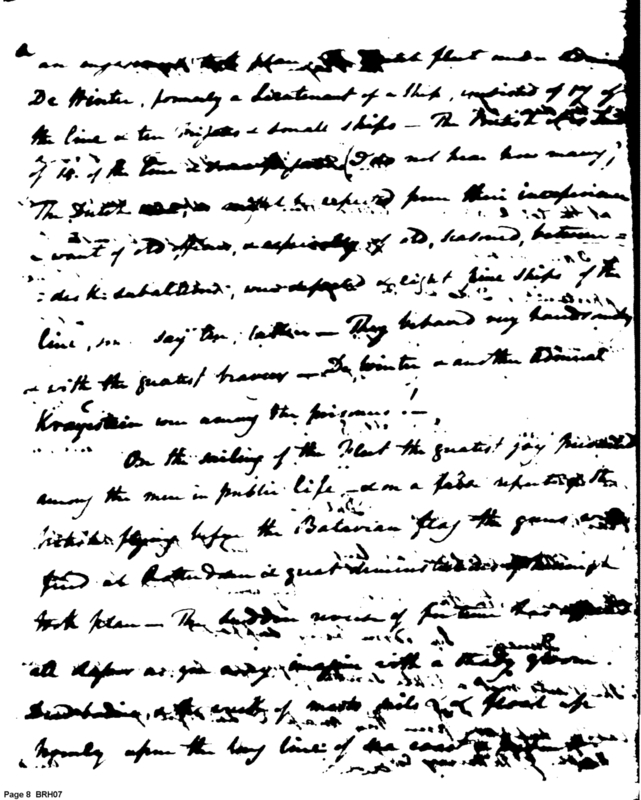 an engagement took place The Dutch fleet under Admiral
De Winter, formerly a Lieutenant of a Ship, consisted of 17 of
the line & ten frigates & small ships — The British
of 18 of the line & (I do not hear how many)
The Dutch as might be expected from their inexperience
& want of old officers, & especially of old, seasoned, between =
= decks subalterns, were defeated & eight fine ships of the
line, say ten, taken — They behaved very handsomely
& with the greatest bravery — De Winter & another Admiral
were among the prisoners! —
On the sailing of the fleet the greatest joy prevailed
among the men in public life — & on a false report of the
British flying before the Batavian flag the guns were
fired at Rotterdam & great of triumph
took place — The sudden reverse of fortune has
all as you may imagine with a steady gloom.
Dead bodies, & the wrecks of masts sails & float up
hourly upon the long line of sea coast
Page 8 BRH07